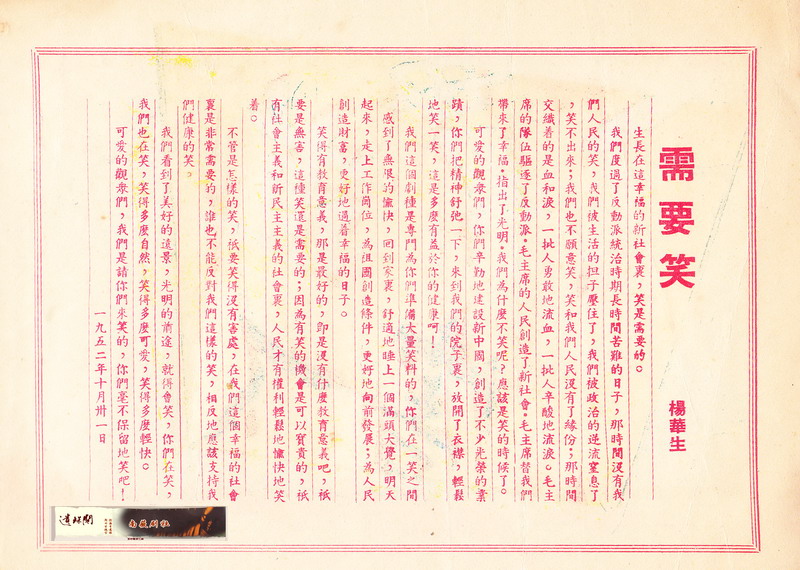 需要笑
楊華生
生長在這幸福的新社會裏，笑是需要的。
我們度過了反動派統治時期長時間苦難的日子，那時間沒有我
們人民的笑，我們被生活的担子壓住了，我們被政治的逆流窒息了
，笑不出來；我們也不願意笑，笑和我們人民沒有了緣份；那時間
交織着的是血和淚，一批人勇敢地流血，一批人辛酸地流淚。毛主
席的隊伍驅逐了反動派。毛主席的人民創造了新社會。毛主席替我們
帶來了幸福。指出了光明。我們為什麼不笑呢？應該是笑的時候了。
可愛的觀衆們，你們辛勤地建設新中國，創造了不少光榮的業
蹟，你們把精神舒弛一下，來到我們的院子裏，放開了衣襟，輕鬆
地笑一笑，這是多麼有益於你的健康呵！
我們這個劇種是專門為你們準備大量笑料的，你們在一笑之間
感到了無限的愉快，回到家裏，舒適地睡上一個滿頭大覺，明天
起來，走上工作崗位，為祖國創造條件，更好地向前發展；為人民
創造財富，更好地過着幸福的日子。
笑得有教育意義，那是最好的，即是沒有什麼教育意義吧，祇
要是無害，這種笑還是需要的；因為有笑的機會是可以寳貴的，祇
有社會主義和新民主主義的社會裏，人民才有權利輕鬆地愉快地笑
着。
不管是怎樣的笑，祇要笑得沒有害處，在我們這個幸福的社會
裏是非常需要的，誰也不能反對我們這樣的笑，相反地應該支持我
們健康的笑。
我們看到了美好的遠景，光明的前途，就得會笑，你們在笑，
我們也在笑，笑得多麼自然，笑得多麼可愛，笑得多麼輕快。
可愛的觀衆們，我們是請你們來笑的，你們毫不保留地笑吧！
一九五二年十月卅一日